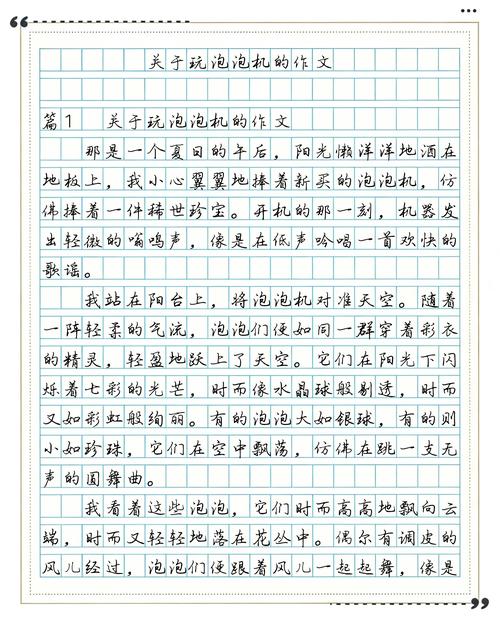 关于玩泡泡机的作文
篇1 关于玩泡泡机的作文
那是一个夏日的午后，阳光懒洋洋地洒在
地板上，我小心翼翼地捧着新买的泡泡机，仿
佛捧着一件稀世珍宝。开机的那一刻，机器发
出轻微的嗡鸣声，像是在低声吟唱一首欢快的
歌谣。
我站在阳台上，将泡泡机对准天空。随着
一阵轻柔的气流，泡泡们便如同一群穿着彩衣
的精灵，轻盈地跃上了天空。它们在阳光下闪
烁着七彩的光芒，时而像水晶球般剔透，时而
又如彩虹般绚丽。有的泡泡大如银球，有的则
小如珍珠，它们在空中飘荡，仿佛在跳一支无
声的圆舞曲。
我看着这些泡泡，它们时而高高地飘向云
端，时而又轻轻地落在花丛中。偶尔有调皮的
风儿经过，泡泡们便跟着风儿一起起舞，像是